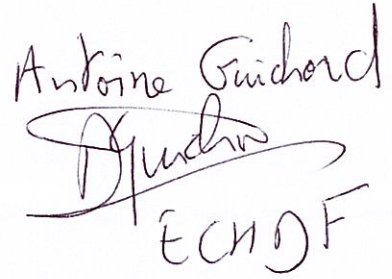 Antoine Guichard
ECHDF